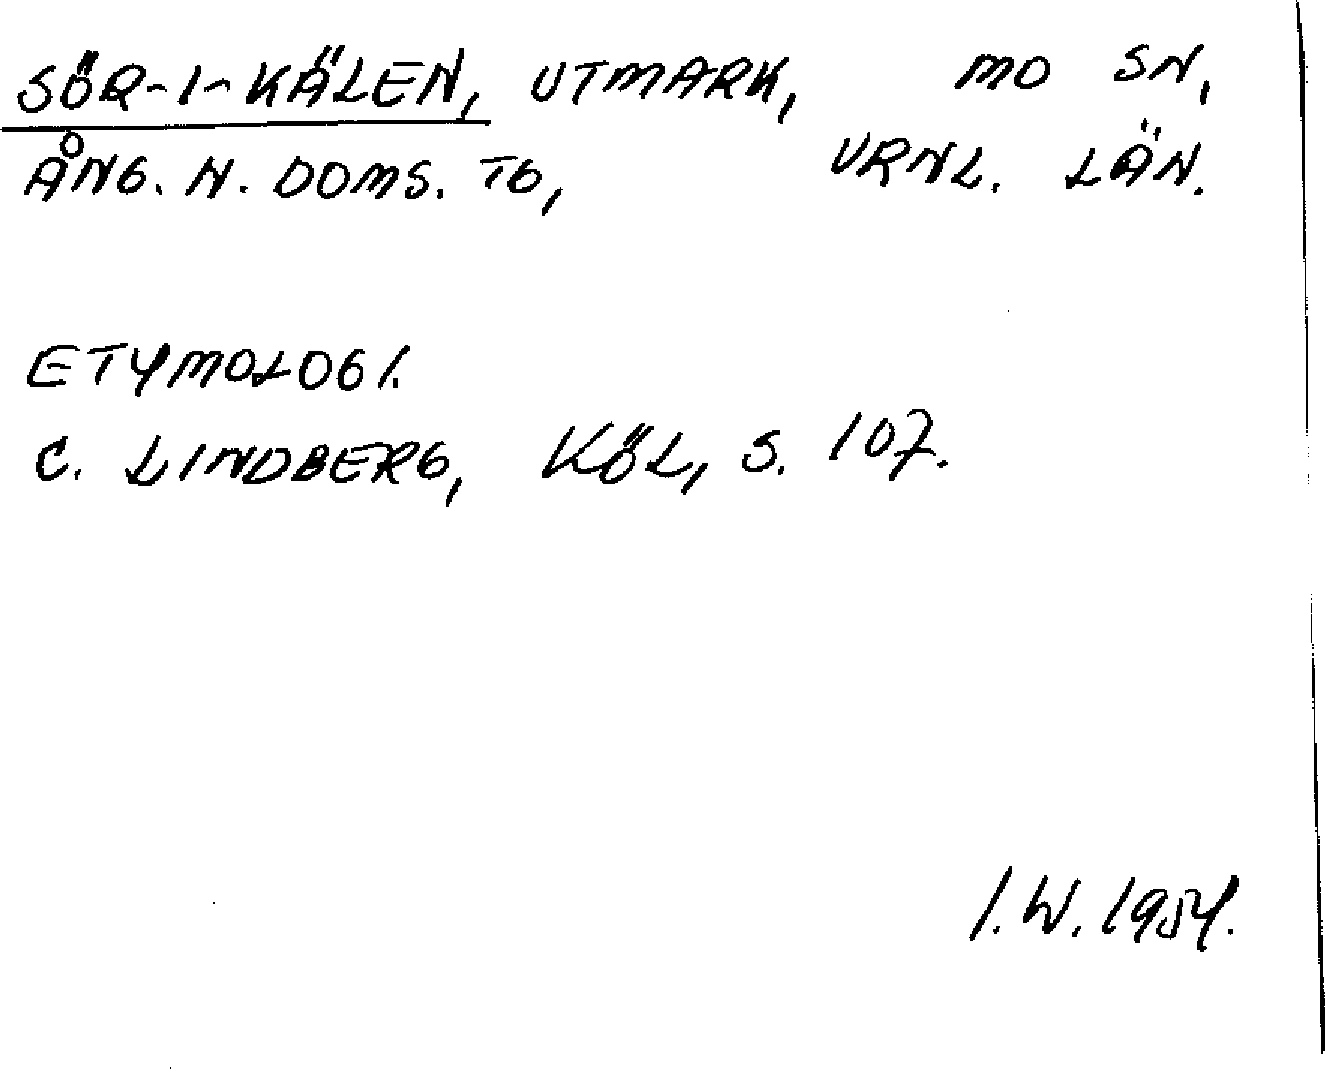 SÖR-I-KÄLEN, UTMARK, MO SN,
ÅNG. N. DOMS. TG, VRNL. LÄN.
ETYMOLOGI.
C. LINDBERG, KÖL, S. 107.
I. W. 1954.